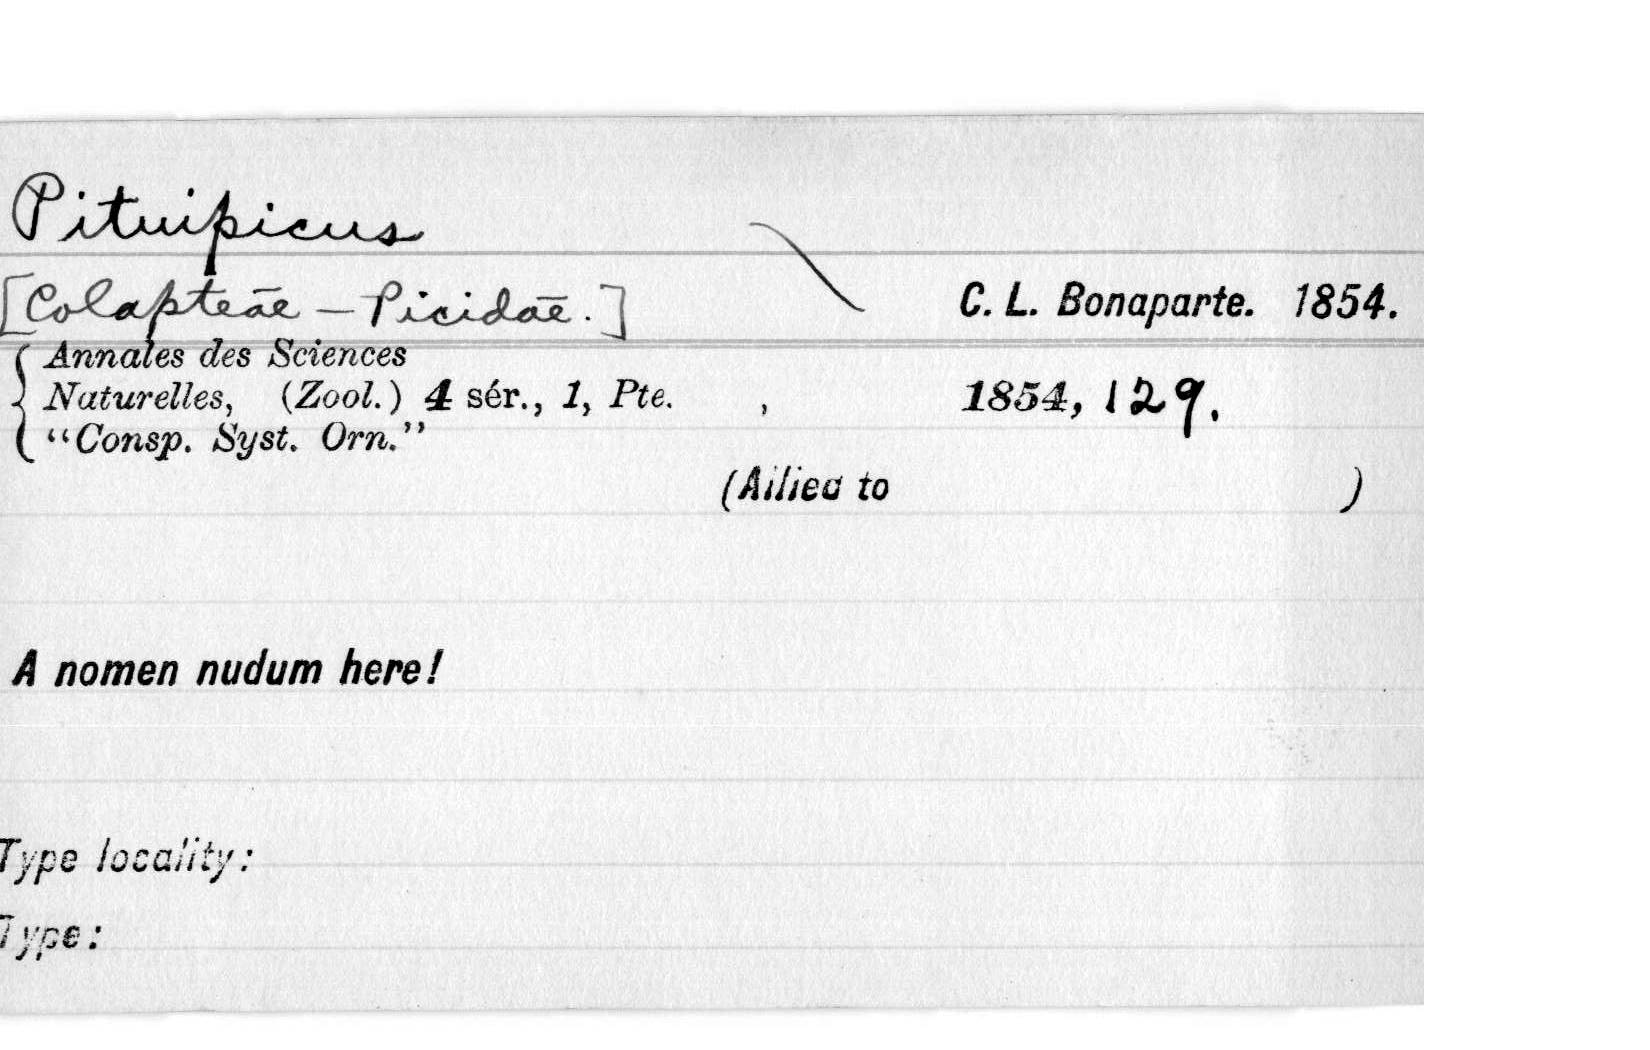 Pituipicus
[Colapteae — Picidae.] C. L. Bonaparte. 1854.
Annales des Sciences
Naturelles, (Zool.) 4 sér., 1, Pte. , 1854, 129.
"Consp. Syst. Orn."
(Allied to )
A nomen nudum here!
Type locality:
Type: